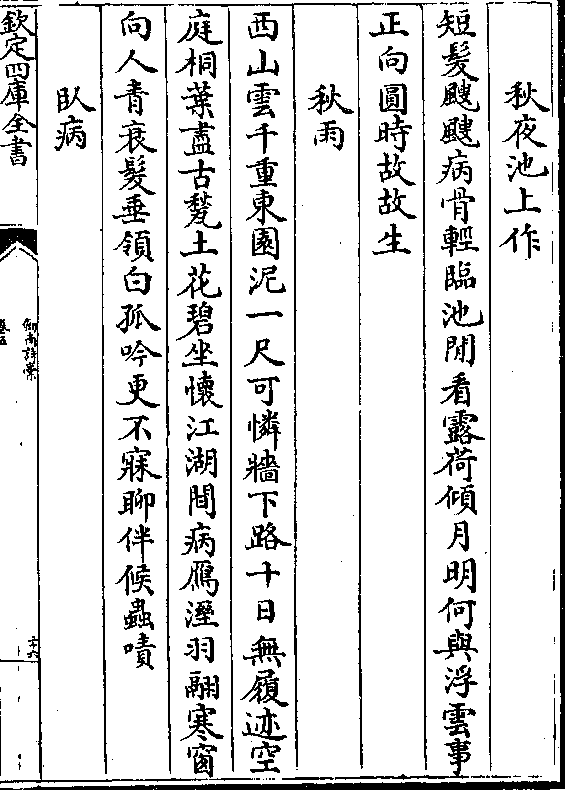 秋夜池上作
短髮颼颼病骨輕臨池閒看露荷傾月明何與浮雲事
正向圓時故故生
秋雨
西山雲千重東園泥一尺可憐牆下路十日無履迹空
庭桐葉盡古甃土花碧坐懷江湖間病鴈溼羽翮寒窗
向人青衰髮垂領白孤吟更不寐聊伴候蟲嘖
臥病
欽定四庫全書
劍南詩藁